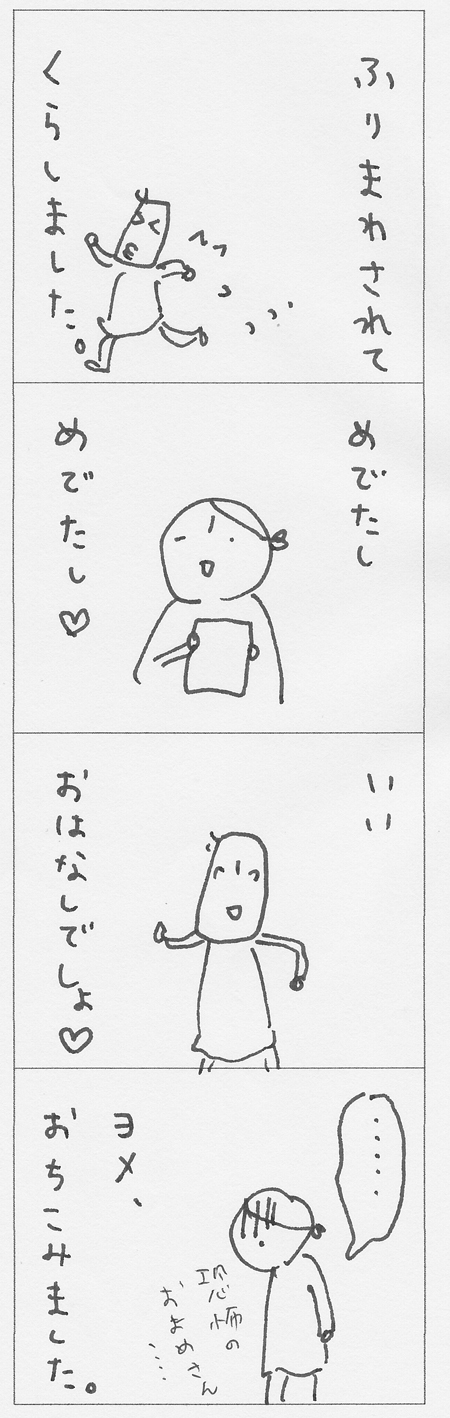 ふりまわされて
くらしました。
めでたし
めでたし♡
いい
おはなしでしょ♡
……
ヨメ、
おちこみました。
恐怖の
おまめさん
……